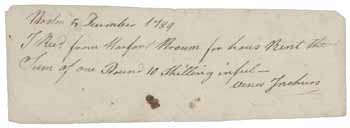 Boston 5 December 1789
I Recd from Harford Broom for hous Rent the
Sum of one Pound 10 Shilling in full —
Amos